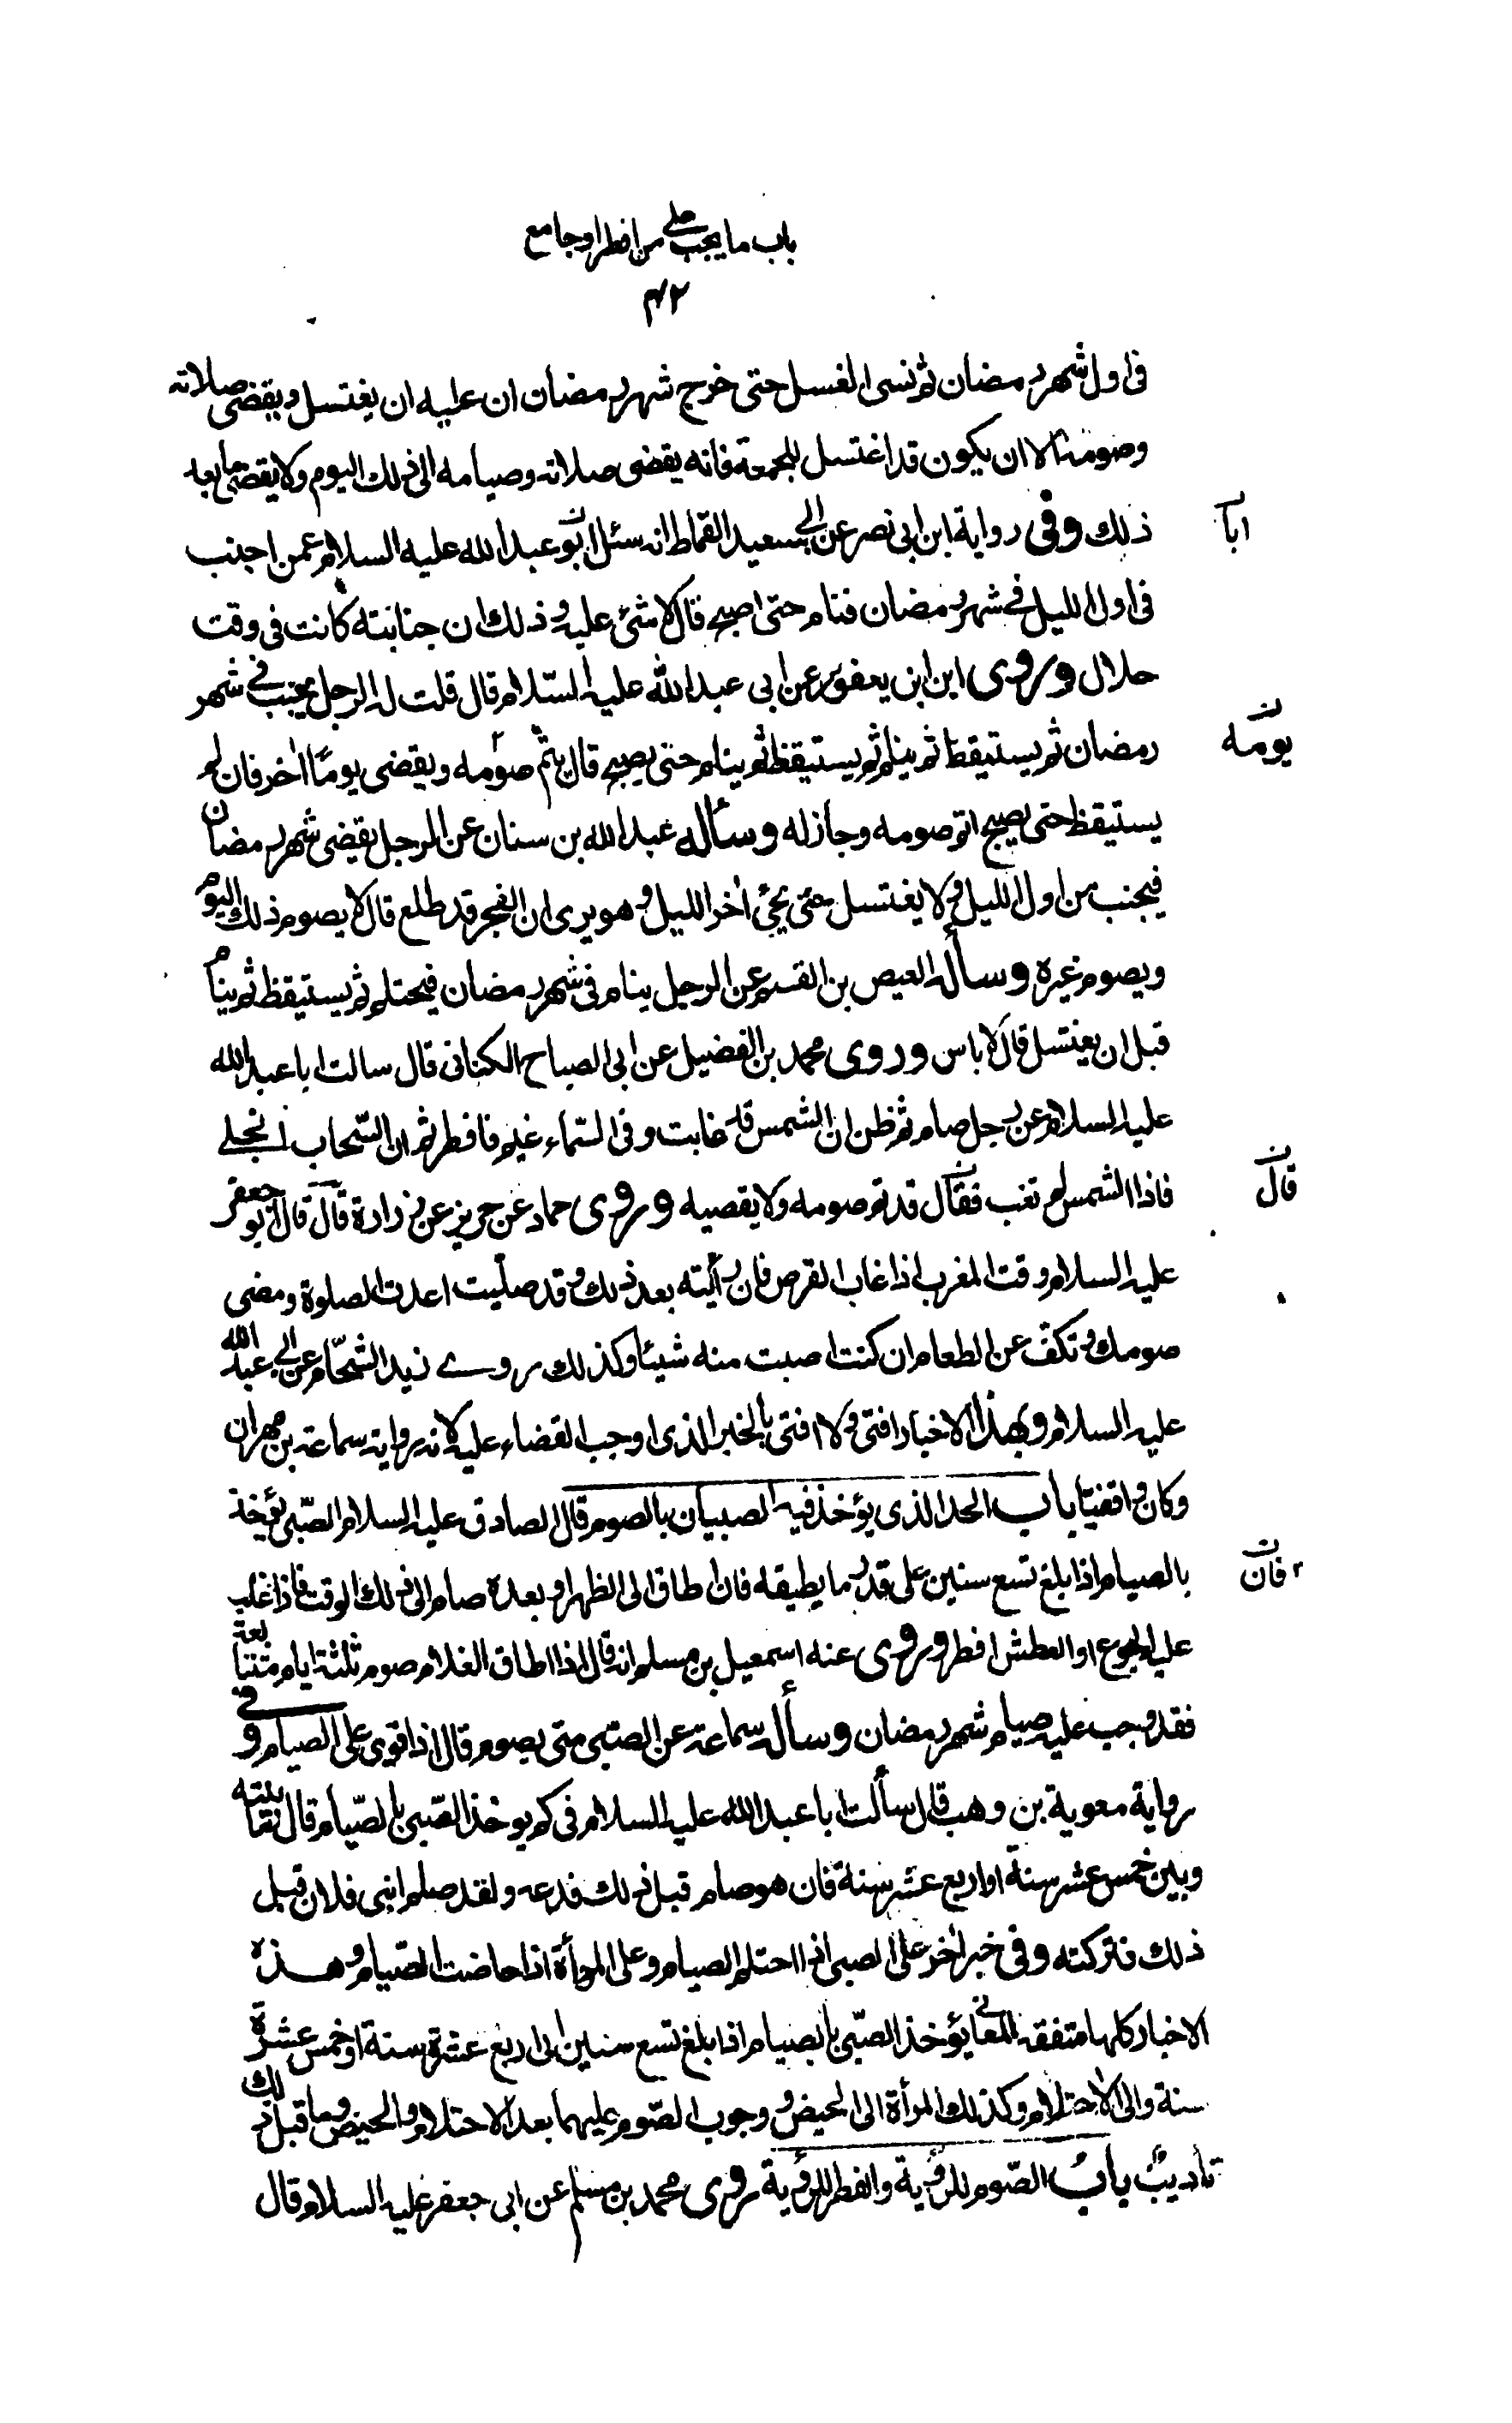 باب ما يجب على من افطر او جامع
۴۲
فى اول شهر رمضان ثم نسى الغسل حتى خرج شهر رمضان ان عليه ان يغتسل ويقضى صلاته
وصومه الا ان يكون قد اغتسل للجمعة فانه يقضى صلاته وصيامه الى ذلك اليوم ولا يقضى ما بعد
ذلك وفى رواية ابن ابى نصر عن ابى سعيد القماط انه سئل ابو عبد الله عليه السلام عمن اجنب
ابا
فى اول الليل فى شهر رمضان فنام حتى اصبح قال لا شئ عليه وذلك ان جنابته كانت فى وقت
حلال وروى ابن ابى يعفور عن ابى عبد الله عليه السّلام قال قلت له الرجل يجنب فى شهر
رمضان ثم يستيقظ ثم ينام ثم يستيقظ ثم ينام حتى يصبح قال يتم صومه ويقضى يومًا اخر فان لم
يومه
يستيقظ حتى يصبح اتم صومه وجاز له وسأله عبد الله بن سنان عن الرجل يقضى شهر رمضان
فيجنب من اول الليل ولا يغتسل حتى يجئ اخر الليل وهو يرى ان الفجر قد طلع قال لا يصوم ذلك اليوم
ويصوم غيره وسأله العيص بن القسم عن الرجل ينام فى شهر رمضان فيحتلم ثم يستيقظ ثم ينام
قبل ان يغتسل قال لا باس وروى محمد بن الفضيل عن ابى الصباح الكنانى قال سالت ابا عبد الله
عليه السلام عن رجل صام ثم ظن ان الشمس قد غابت وفى السّماء غيم فافطر ثم ان السّحاب انجلى
فاذا الشمس لم تغب فقال قد تم صومه ولا يقضيه وروى حماد عن حريز عن زرارة قال قال ابو جعفر
قال
عليه السلام وقت المغرب اذا غاب القرص فان رأيته بعد ذلك وقد صلّيت اعدت الصلوة ومضى
صومك وتكفّ عن الطعام ان كنت اصبت منه شيئا وكذلك روى زيد الشحّام عن ابى عبد الله
عليه السلام وبهذا الاخبار افتى ولا افتى بالخبر الذى اوجب القضاء عليه لانه رواية سماعة بن مهران
وكان واقفيّا باب الحد الذى يؤخذ فيه الصبيان بالصوم قال الصادق عليه السلام الصّبى يؤخذ
بالصيام اذا بلغ تسع سنين على قدر ما يطيقه فان اطاق الى الظهر او بعده صام الى ذلك الوقت فاذا غلب
فان
عليه الجوع او العطش افطر وروى عنه اسمعيل بن مسلم انه قال اذا اطاق الغلام صوم ثلثة ايام متتابعة
فقد وجب عليه صيام شهر رمضان وسأله سماعة عن الصّبى متى يصوم قال اذا قوى على الصيام وفى
رواية معوية بن وهب قال سألت ابا عبد الله عليه السلام فى كم يوخذ الصّبى بالصّيام قال ما بينه
وبين خمس عشر سنة او اربع عشر سنة فان هو صام قبل ذلك فدعه ولقد صام ابنى فلان قبل
ذلك فتركته وفى خبر اخر على الصبى اذا احتلم الصيام وعلى المرأة اذا حاضت الصّيام وهذه
الاخبار كلها متفقة المعانى يؤخذ الصّبى بالصيام اذا بلغ تسع سنين الى اربع عشرة سنة او خمس عشرة
سنة والى الاحتلام وكذلك المرأة الى الحيض ووجوب الصّوم عليهما بعد الاحتلام والحيض وما قبل ذلك
تاديبٌ بابُ الصّوم للرؤية والفطر للرؤية روى محمد بن مسلم عن ابى جعفر عليه السلام قال